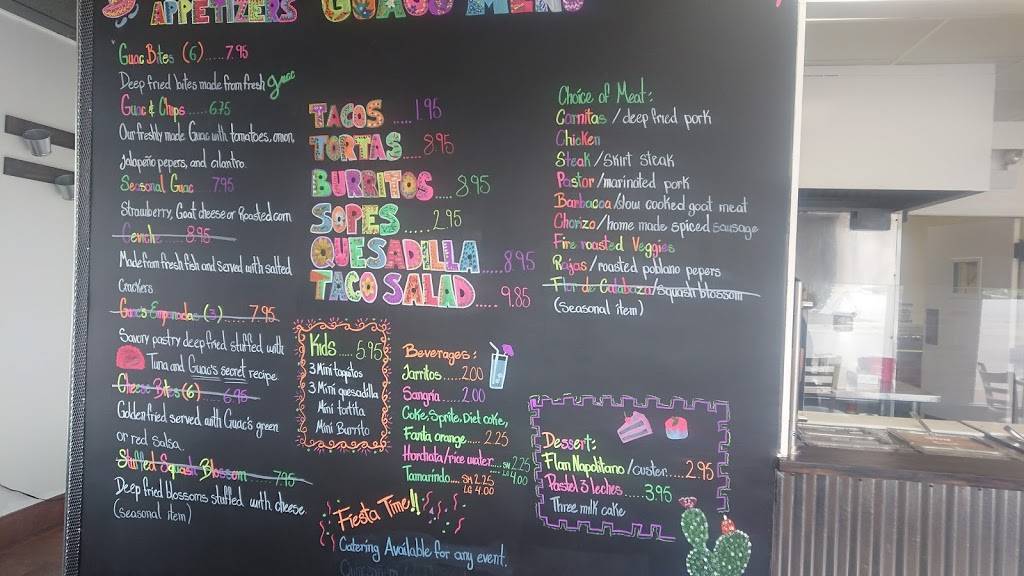 APPETIZERS
GUACS MENU
Guac Bites (6).....7.95
Deep fried bites made from fresh guac
Guac & Chips.....6.75
Our freshly made Guac with tomatoes, onion,
jalapeño pepers, and cilantro.
Seasonal Guac...7.95
Strawberry, Goat cheese or Roasted corn
Ceviche.....8.95
Made from fresh fish and served with salted
crackers
Guac's Empanadas (3).....7.95
Savory pastry deep fried stuffed with
Tuna and Guac's secret recipe
Cheese Bites (6)....6.95
Golden fried served with Guac's green
or red salsa.
Stuffed Squash Blossom.....7.95
Deep fried blossoms stuffed with cheese
(seasonal item)
TACOS.....1.95
TORTAS....8.95
BURRITOS....8.95
SOPES.....2.95
QUESADILLA.....8.95
TACO SALAD.....9.85
Kids.....5.95
3 Mini taquitos
3 Mini quesadilla
Mini tortita
Mini Burrito
Beverages:
Jarritos.....2.00
Sangria.....2.00
Coke, Sprite, Diet coke,
Fanta orange.....2.25
Horchata/rice water....SM 2.25
LG 4.00
Tamarindo....SM 2.25
LG 4.00
Fiesta Time!!
Catering Available for any event.
Choice of Meat:
Carnitas /deep fried pork
Chicken
Steak/Skirt steak
Pastor/marinated pork
Barbacoa/slow cooked goat meat
Chorizo/home made spiced sausage
Fire roasted Veggies
Rajas/roasted poblano pepers
Flor de Calabaza/squash blossom
(seasonal item)
Dessert:
Flan Napolitano/custer....2.95
Pastel 3 leches.....3.95
Three milk cake